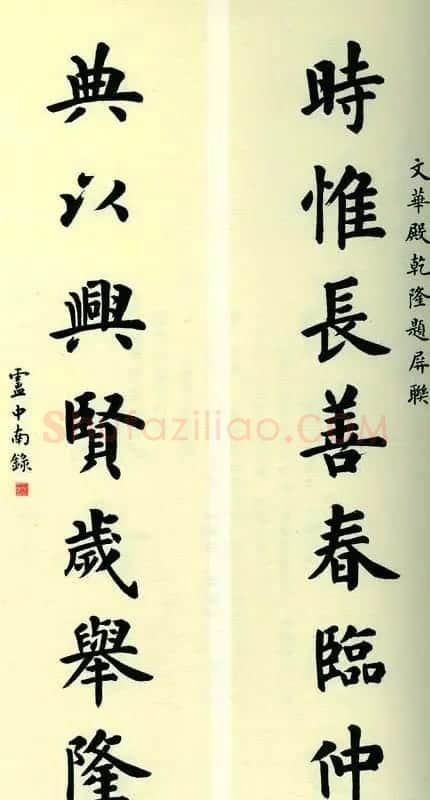 文華殿乾隆題屏聯
時惟長善春臨仲
典以興賢歲舉隆
盧中南錄
Shufaziliao.COM